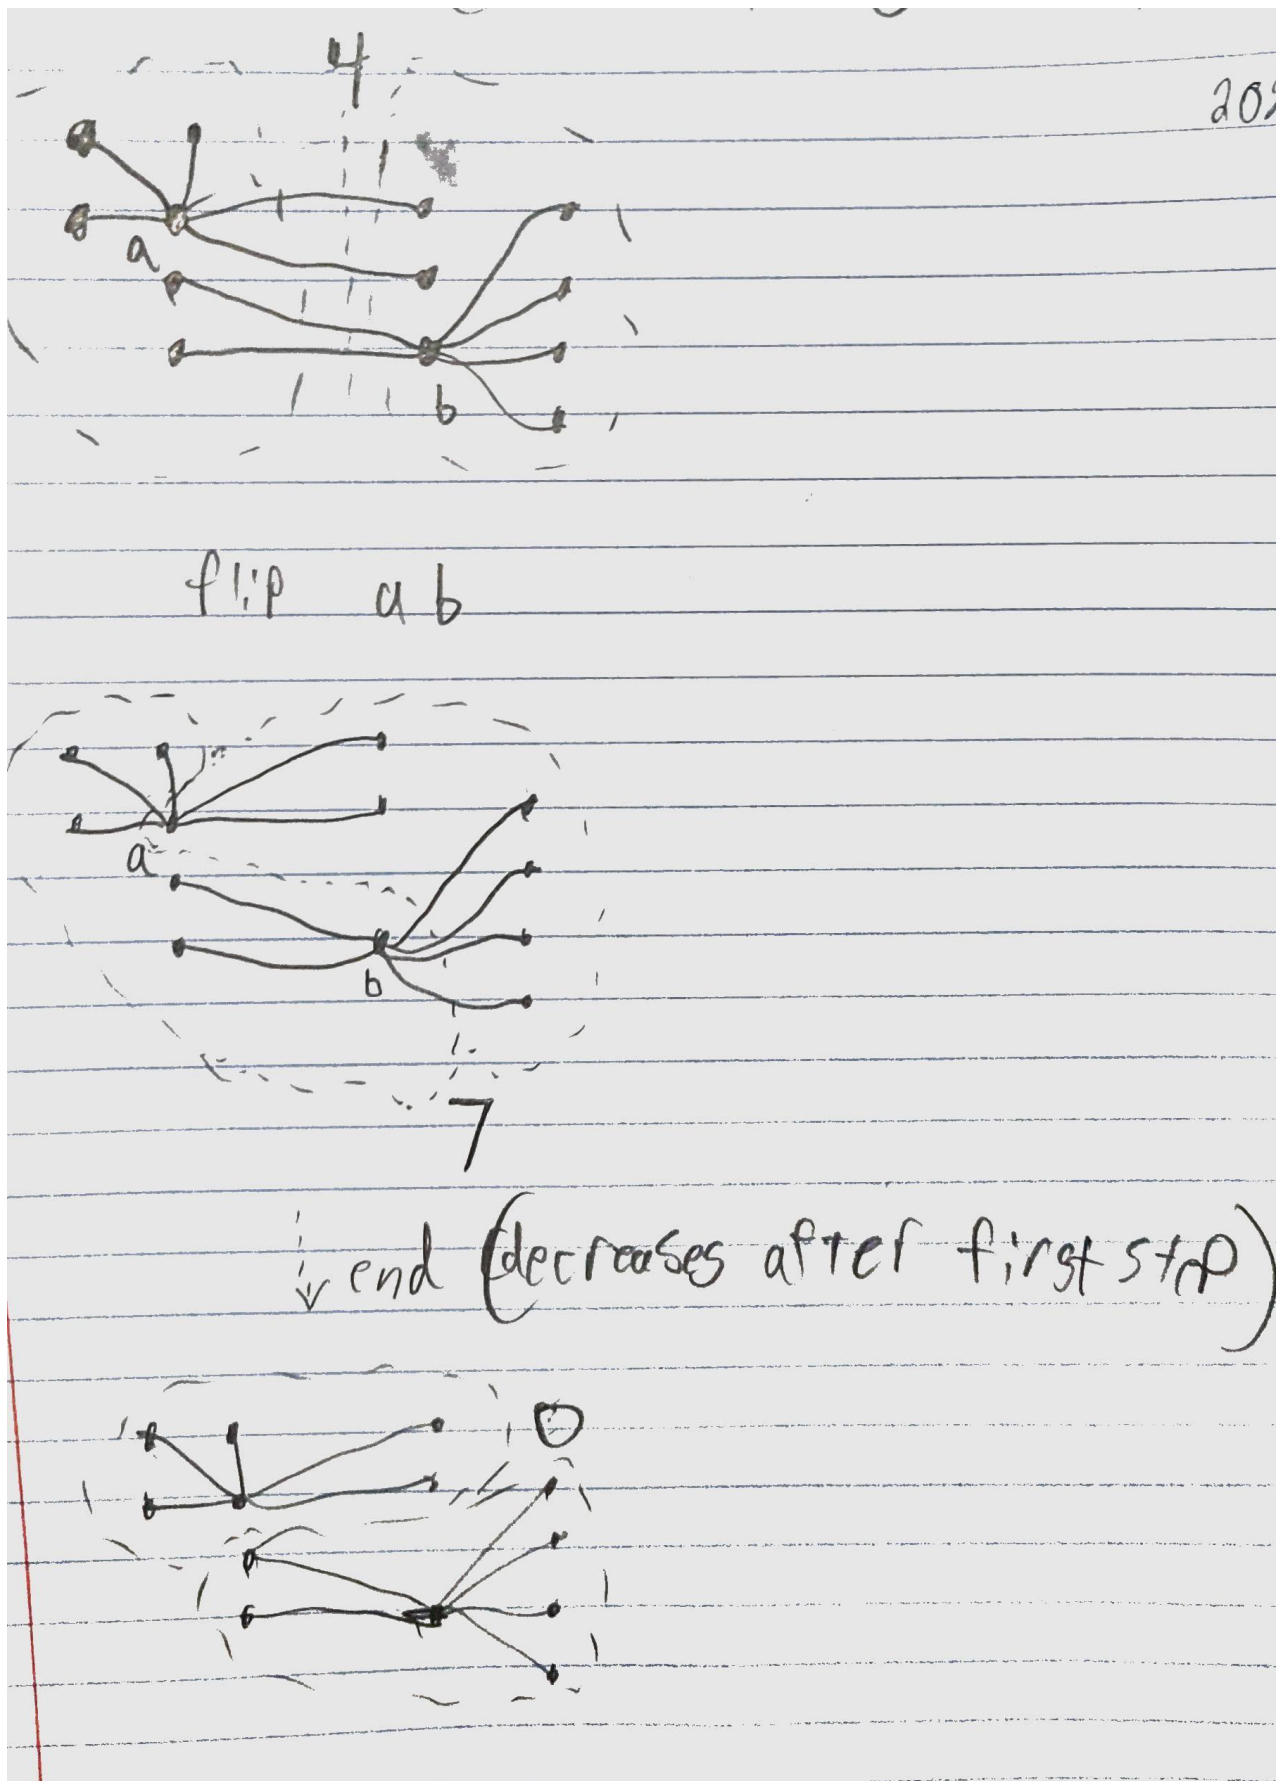 4
a
b
flip a b
a
b
7
end (decreases after first step)
0